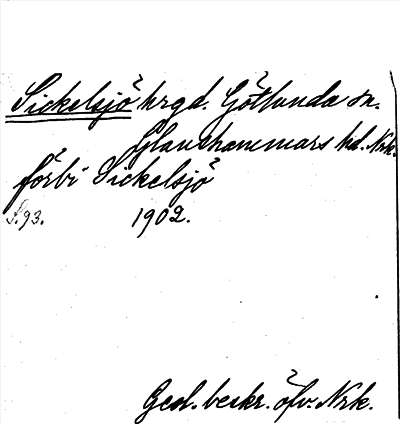 Sickelsjö hrgd. Götlunda sn.
Glanshammars hd. Nrk.
förbi Sickelsjö
S. 93. 1902.
Geol. beskr. öfv. Nrk.